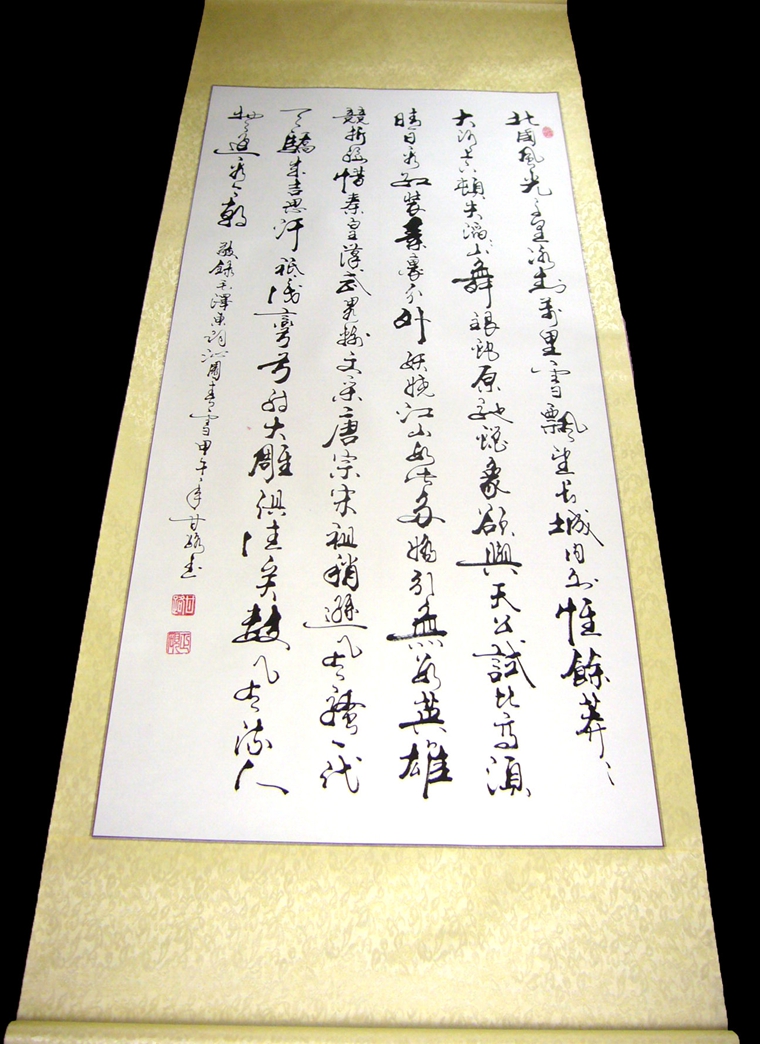 北國風光千里冰封萬里雪飄望長城內外惟餘莽々
大河上下頓失滔々山舞銀蛇原馳蠟象欲與天公試比高須
晴日看紅裝素裹分外妖嬈江山如此多嬌引無數英雄
競折腰惜秦皇漢武略輸文采唐宗宋祖稍遜風騷一代
天驕成吉思汗祇識彎弓射大雕俱往矣數風流人
物還看今朝 敬錄毛澤東詞沁園春雪甲午年甘書